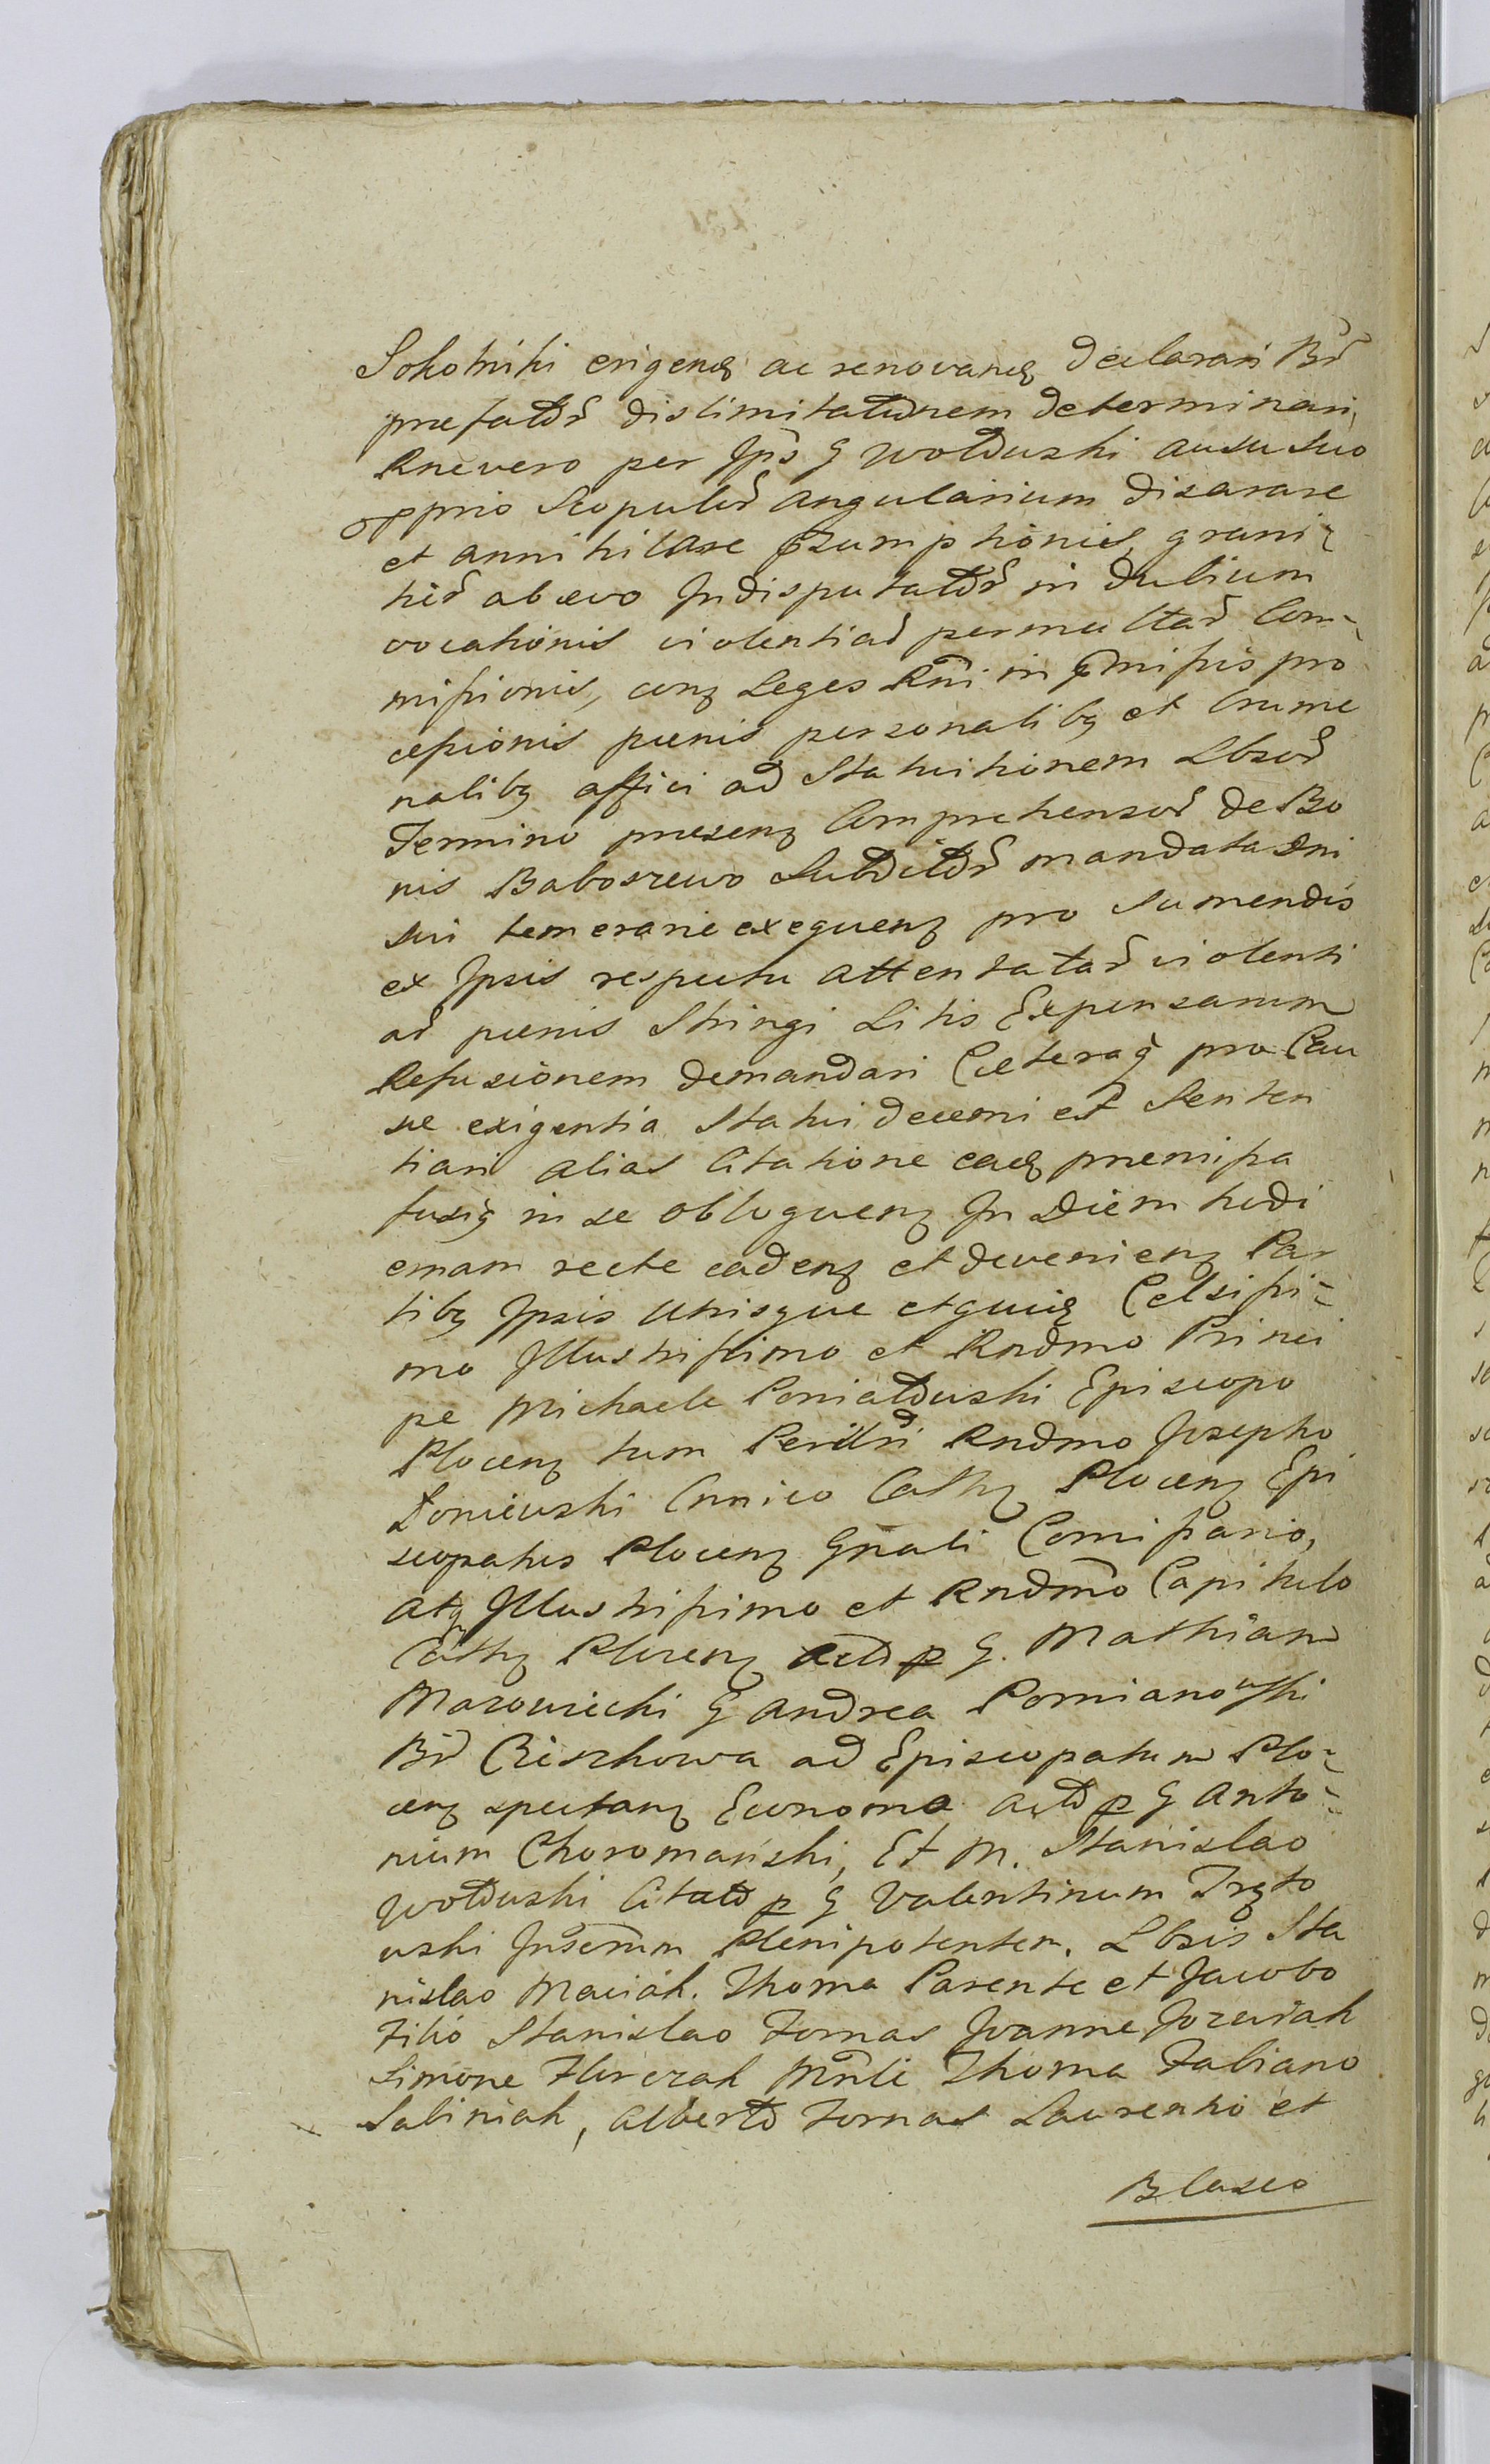 Sokolniki erigenꝫ ac renovanꝫ declarari Br̃
præfator̃ dislimitationem determinari,
Rne vero per Ips̃ G Wołowski ausu suo
pprio Scopulor̃ angularium disarare
et annihilare præsumptionis, grani-
tier̃ ab ævo Indisputator̃ in dubium
vocationis violentiar̃ permultar̃ Com-
missionis, conꝫ Leges Rñi in præmissis pro
cessionis pœnis personalibꝫ et Crimi
nalibꝫ affici ad Statuitionem Lbsor̃
Termino præsenꝫ Comprehensor̃ de Bo
nis Baboszewo Subditor̃ mandata Dni
sui temerarie exequenꝫ pro sumendis
ex Ipsis respectu attentatar̃ violenti
ar̃ pœnis Stringi Litis Expensarum
Refusionem demandari Cæteraqꝫ pro Cau
sæ exigentia Statui decerni et Senten
tiari alias Citatione eaqꝫ præmissa
fusiꝫ in se obloquenꝫ In Diem hodi
ernam recte cadenꝫ et devenienꝫ Par
tibꝫ Ipsis utrisque et quidꝫ Celsissi-
mo Illustrissimo et Rndmo Princi
pe Michaele Poniatowski Episcopo
Plocenꝫ tum Perillri Rndmo Josepho
Łoniewski Cnnico Cathꝫ Plocenꝫ Epi
scopatus Plocenꝫ Gnali Comissario,
atqꝫ Illustrissimo et Rndmo Capitulo
Cathꝫ Plocenꝫ acto p G. Mathiam
Mazowiecki G Andrea Pomianowski
Br̃ Cieszkowa ad Episcopatum Plo-
cenꝫ spectanꝫ Œconomo acto p G Anto-
nium Choromański, Et M. Stanislao
Wołowski Citato p G Valentinum
wski Plenipotentem. Lbsis Sta
nislao Maciak. Thoma Parente et Jacobo
Filio Stanislao Tomas Joanne Jozwiak
Simone Thoma Fabiano
Sabiniak, Alberto Tomas Laurentio et
Blasio